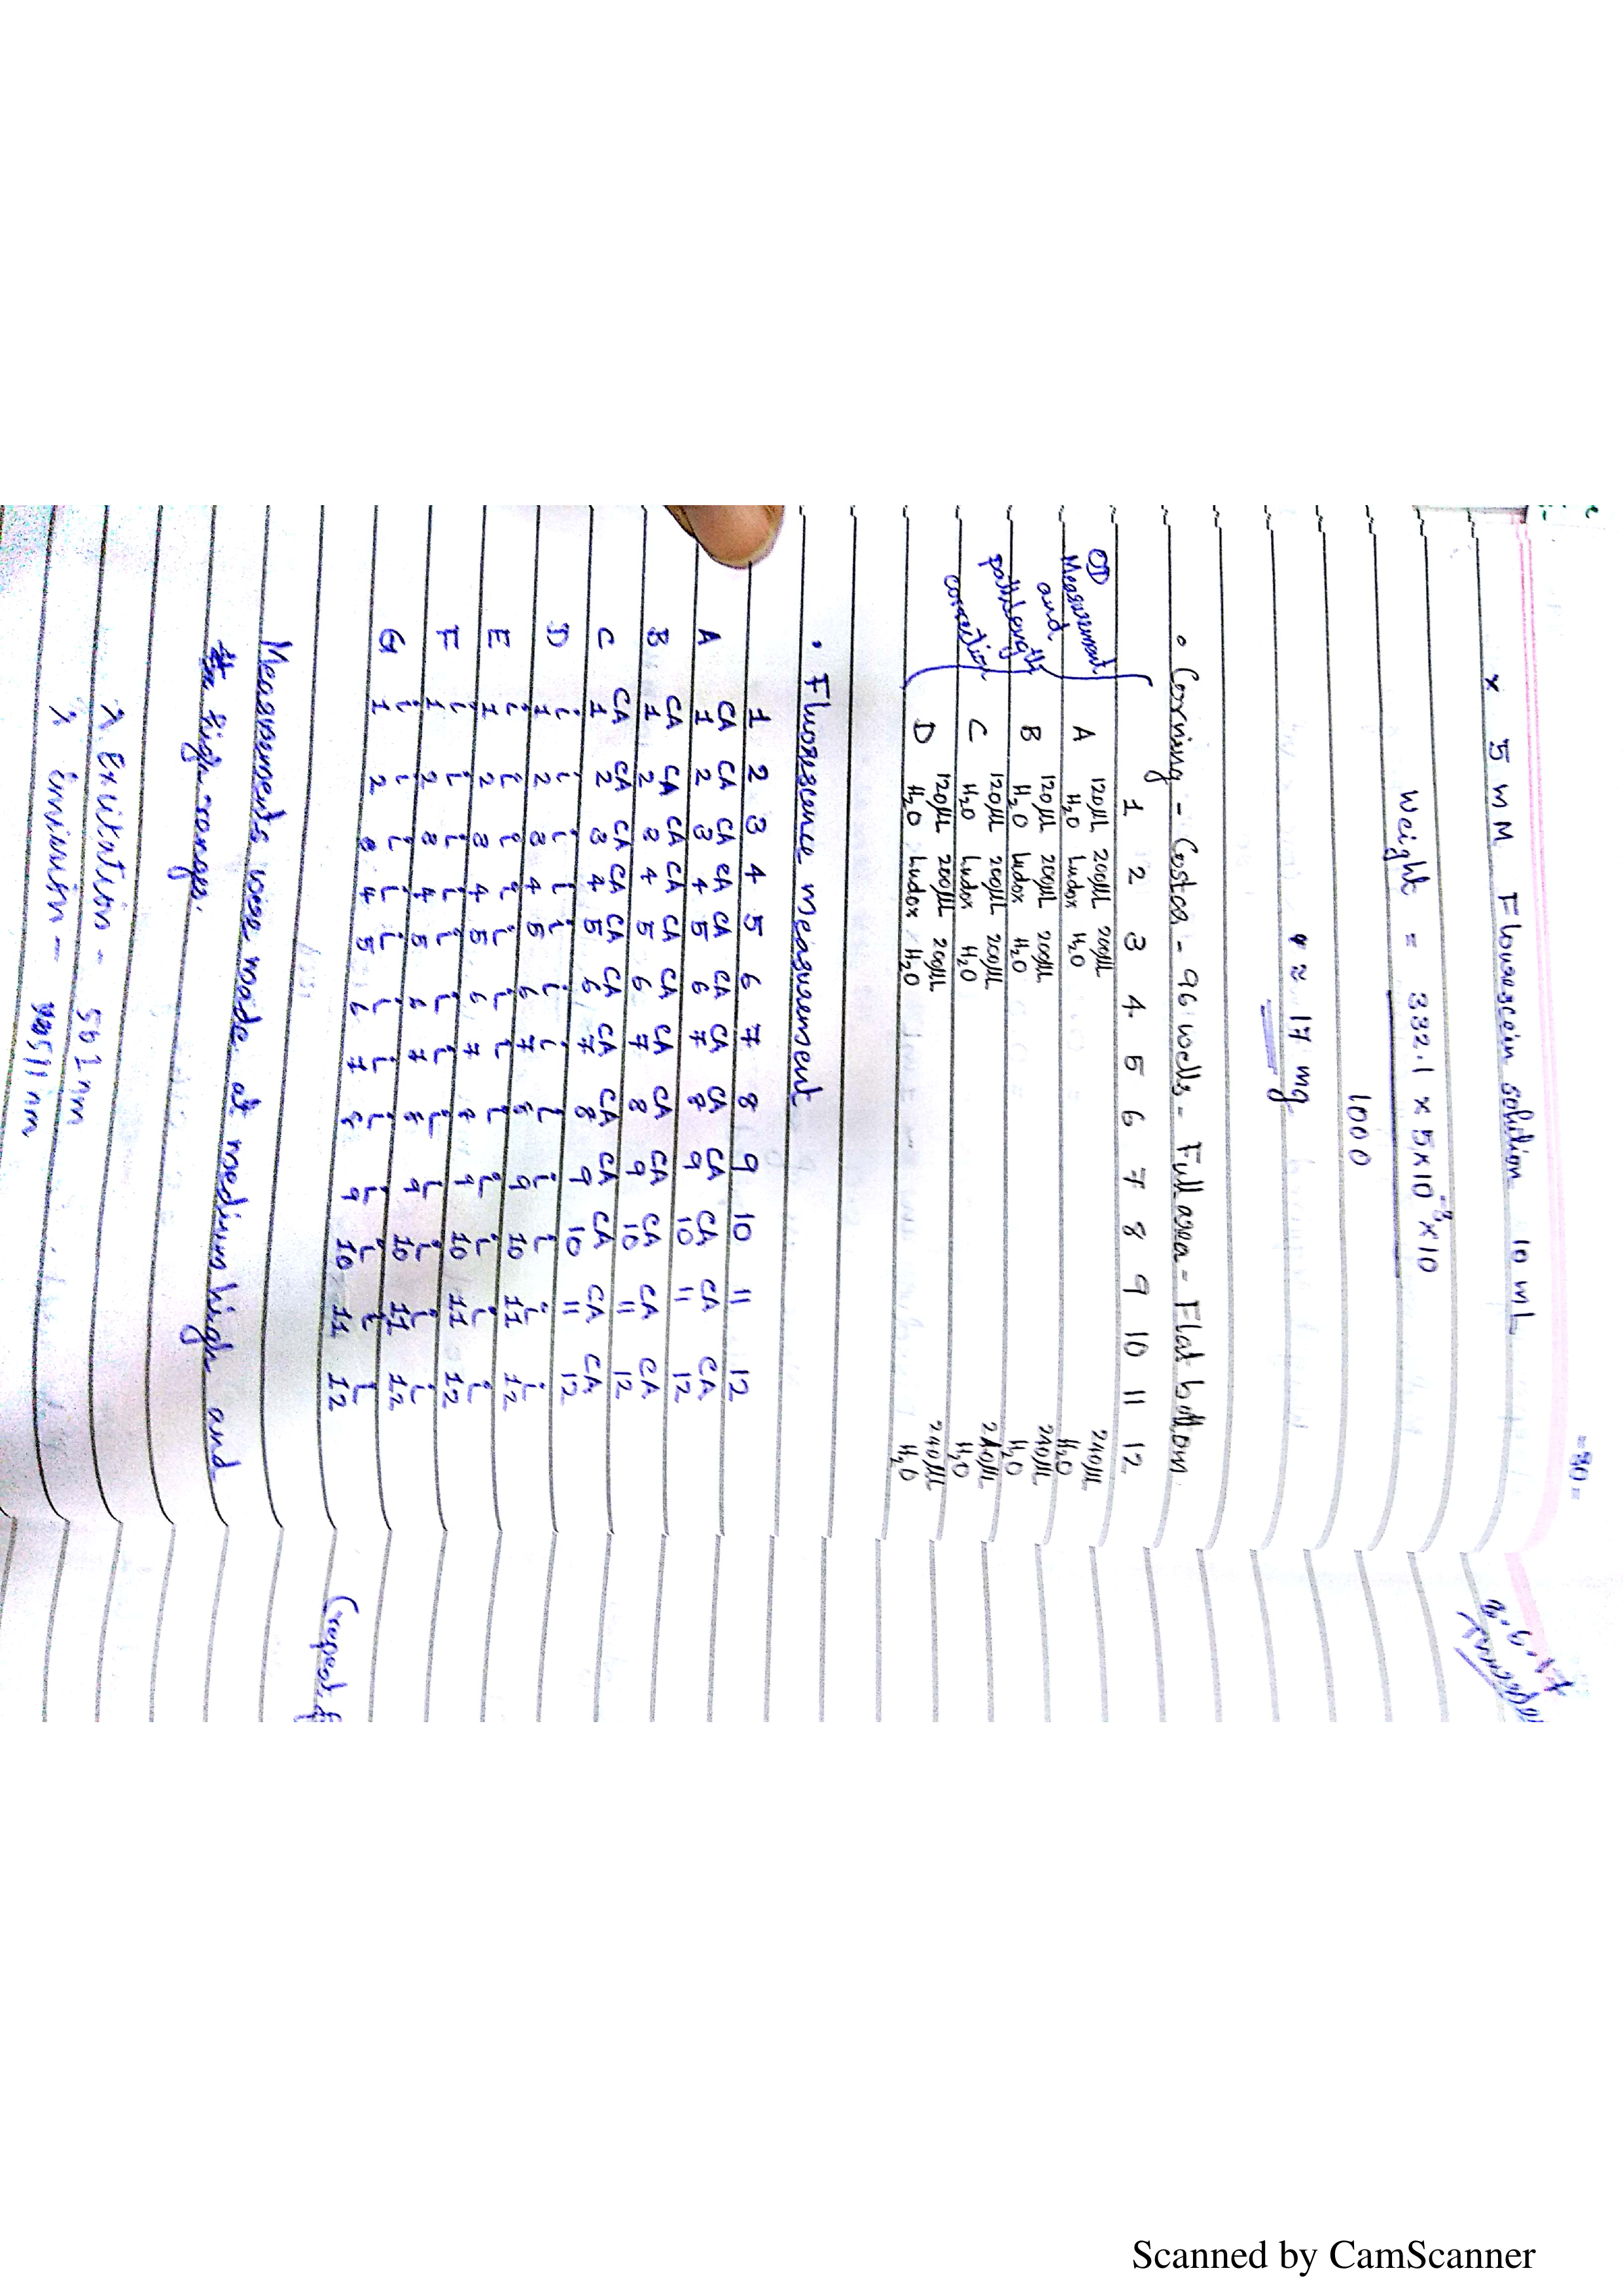 x 5 mM Flourescein solution 10 mL
Weight = 332.1 x 5x10⁻³ x 10
1000
≈ 17 mg
• Corning - Costca - 96 wells - Full area - Flat bottom
1 2 3 4 5 6 7 8 9 10 11 12
OD Measurement and pathlength correction
A 120µL H₂O 200µL Ludox 200µL H₂O 240µL H₂O
B 120µL H₂O 200µL Ludox 200µL H₂O 240µL H₂O
C 120µL H₂O 200µL Ludox 200µL H₂O 240µL H₂O
D 120µL H₂O 200µL Ludox 200µL H₂O 240µL H₂O
• Fluorescence Measurement
1 2 3 4 5 6 7 8 9 10 11 12
A CA1 CA2 CA3 CA4 CA5 CA6 CA7 CA8 CA9 CA10 CA11 CA12
B CA1 CA2 CA3 CA4 CA5 CA6 CA7 CA8 CA9 CA10 CA11 CA12
C CA1 CA2 CA3 CA4 CA5 CA6 CA7 CA8 CA9 CA10 CA11 CA12
D i1 i2 i3 i4 i5 i6 i7 i8 i9 i10 i11 i12
E i1 i2 i3 i4 i5 i6 i7 i8 i9 i10 i11 i12
F i1 i2 i3 i4 i5 i6 i7 i8 i9 i10 i11 i12
G i1 i2 i3 i4 i5 i6 i7 i8 i9 i10 i11 i12
Measurements were made at medium high and
high ranges.
λ Exitation - 501 nm
λ emission - 511 nm
Scanned by CamScanner